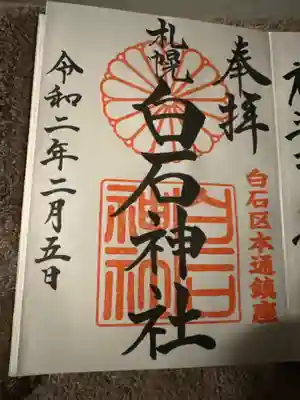 奉拝
白石区本通鎮座
札幌
白石神社
白石
神社
令和二年二月五日